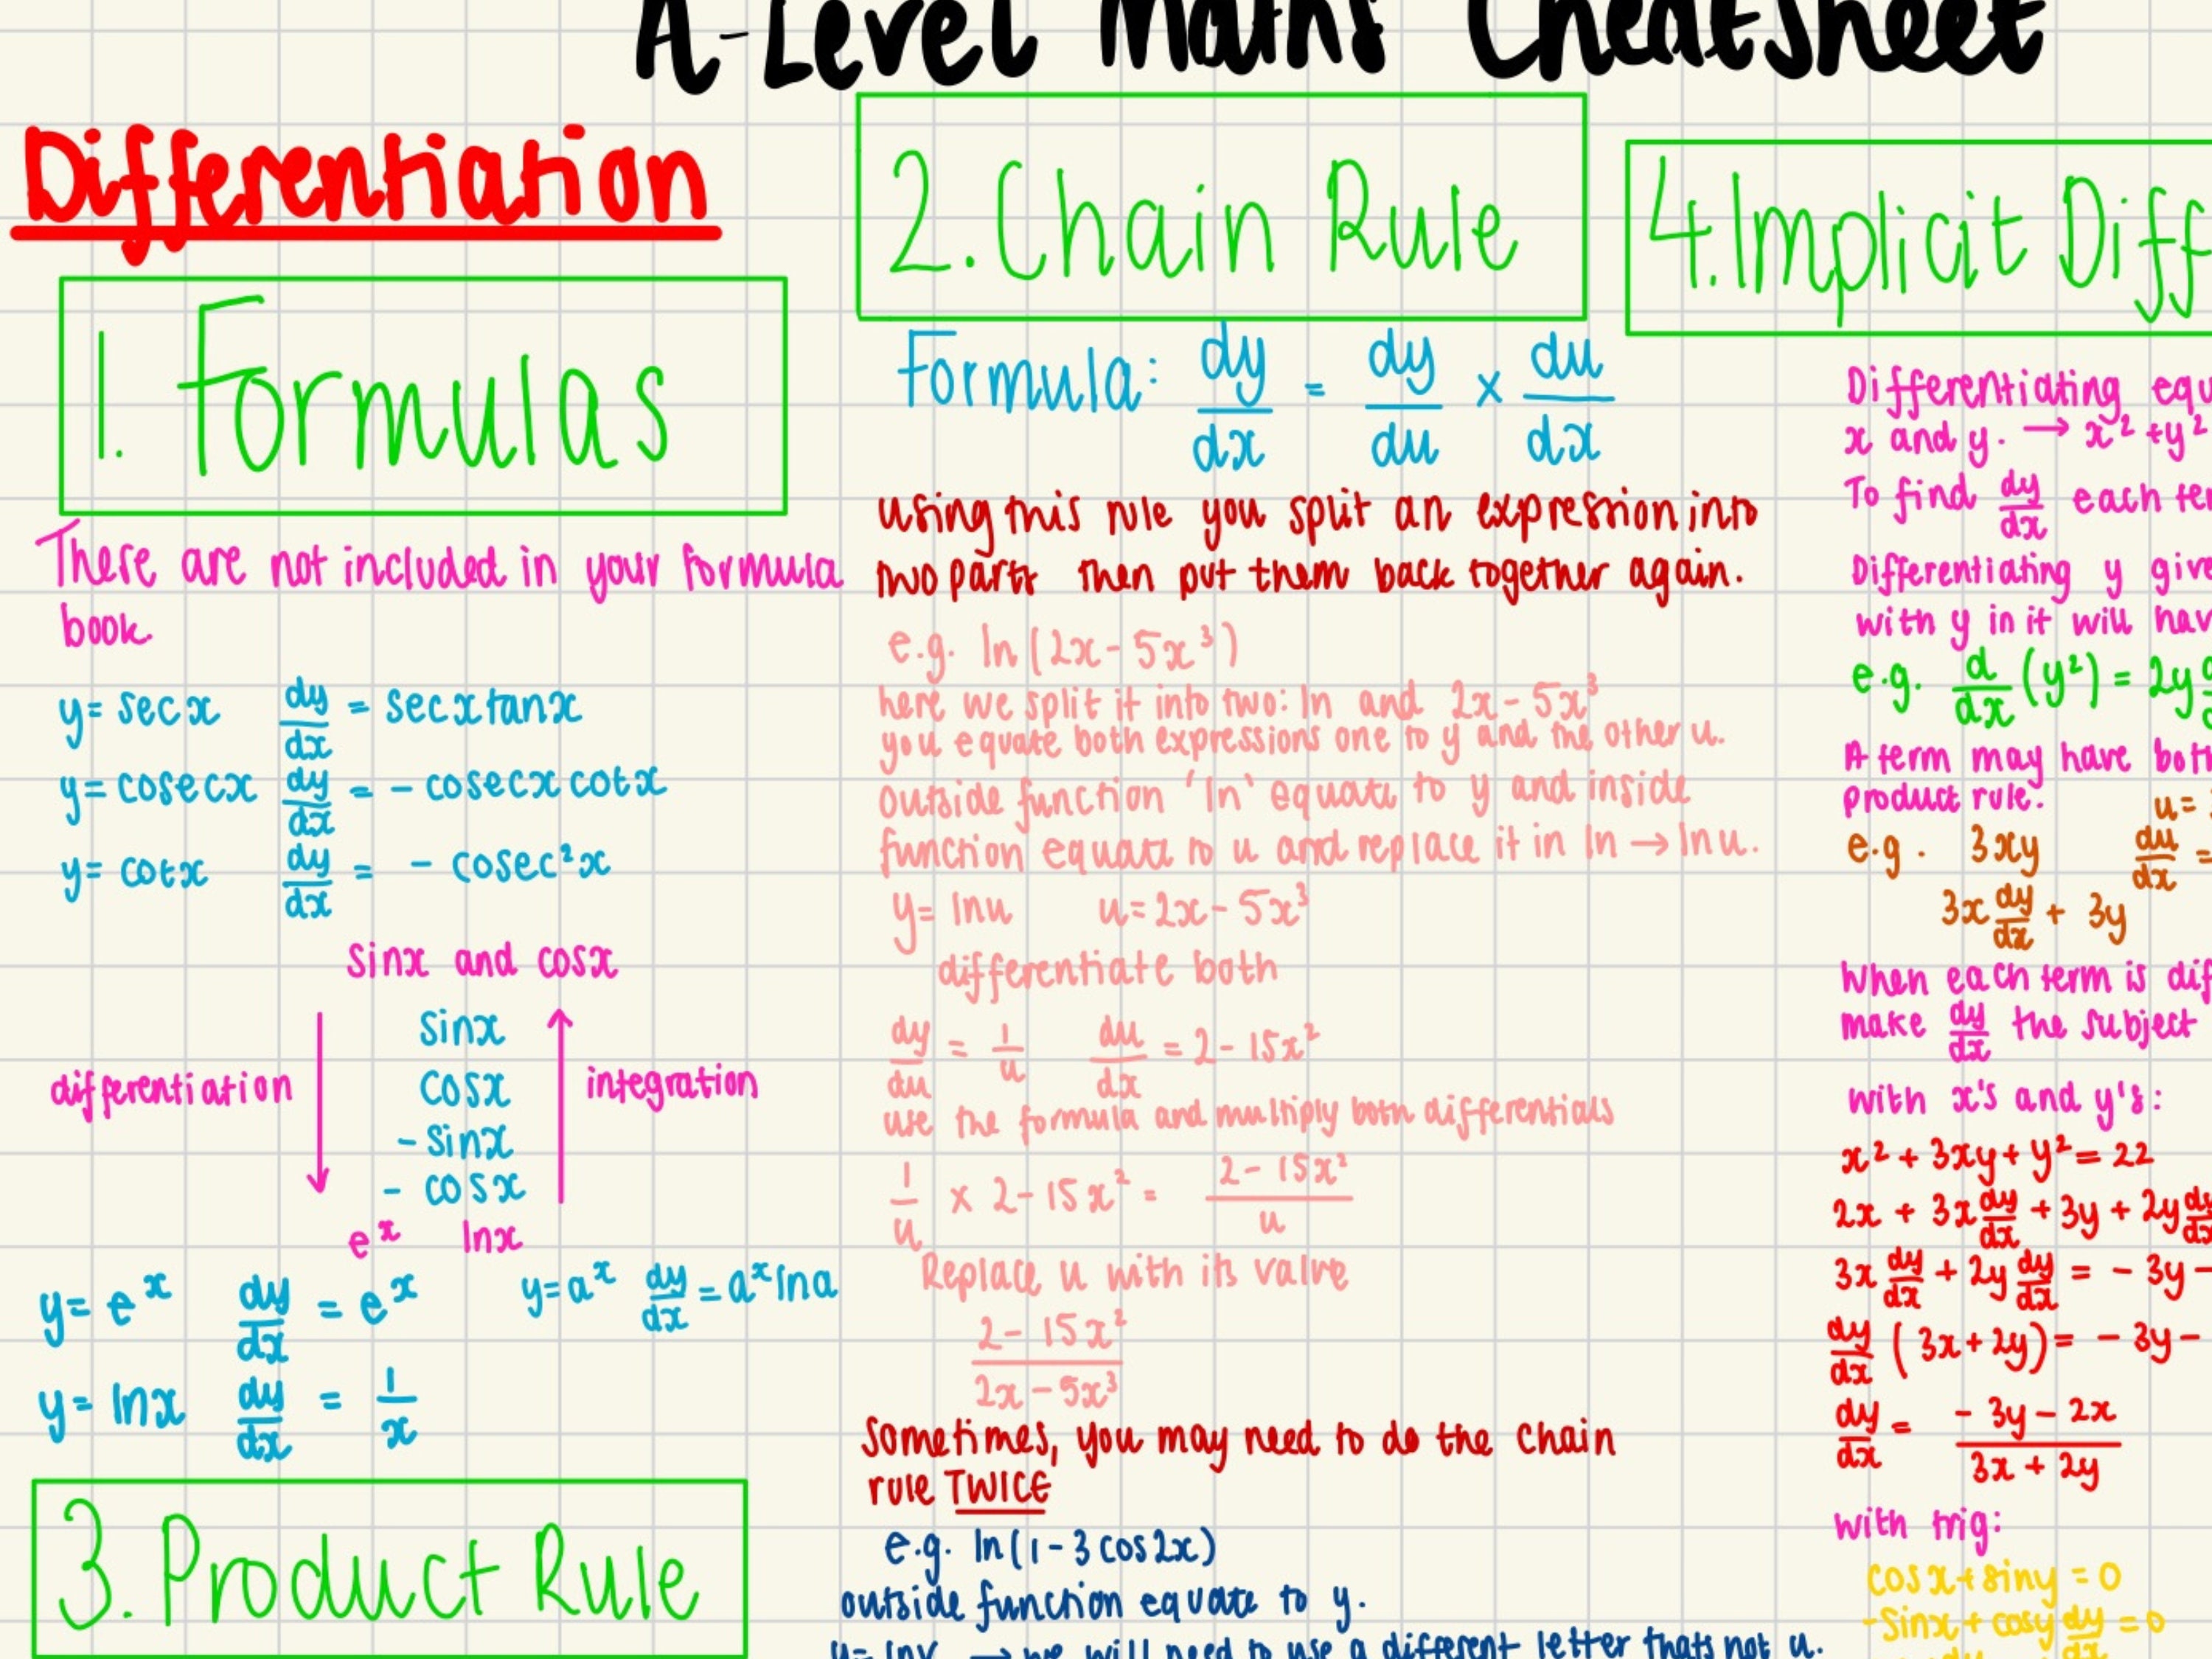 A-Level Maths Cheatsheet
Differentiation
1. Formulas
There are not included in your formula
book.
y= secx dy/dx = secxtanx
y= cosecx dy/dx = - cosecxcotx
y= cotx dy/dx = - cosec²x
sinx and cosx
differentiation
sinx
cosx
- sinx
- cosx
integration
eˣ lnx
y= eˣ dy/dx = eˣ y=aˣ dy/dx = aˣlna
y= lnx dy/dx = 1/x
3. Product Rule
2. Chain Rule
Formula: dy/dx = dy/du × du/dx
using this rule you split an expression into
two parts then put them back together again.
e.g. ln(2x-5x³)
here we split it into two: ln and 2x-5x³
you equate both expressions one to y and the other u.
outside function 'ln' equate to y and inside
function equate to u and replace it in ln → lnu.
y= lnu u=2x-5x³
differentiate both
dy/du = 1/u du/dx = 2-15x²
use the formula and multiply both differentials
1/u × 2-15x² = 2-15x²/u
Replace u with its value
2-15x²/2x-5x³
Sometimes, you may need to do the chain
rule TWICE
e.g. ln(1-3cos2x)
outside function equate to y.
y= lnv → we will need to use a different letter thats not u.
4. Implicit Diff
Differentiating equ
x and y. → x²+y²
To find dy/dx each te
Differentiating y give
with y in it will hav
e.g. d/dx (y²) = 2y
A term may have bot
product rule.
u=
e.g. 3xy du/dx =
3x dy/dx + 3y
When each term is dif
make dy/dx the subject
with x's and y's:
x²+3xy+y²=22
2x + 3x dy/dx + 3y + 2y dy/dx
3x dy/dx + 2y dy/dx = - 3y -
dy/dx (3x+2y) = - 3y -
dy/dx = - 3y - 2x/3x + 2y
with trig:
cosx+siny = 0
-sinx + cosy dy/dx = 0